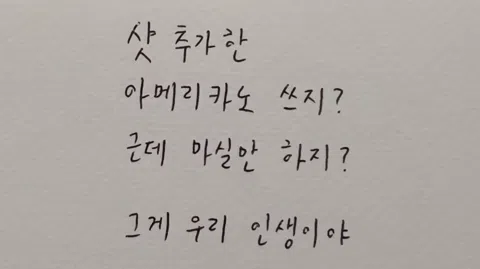 샷 추가한
아메리카노 쓰지?
근데 마실만 하지?
그게 우리 인생이야